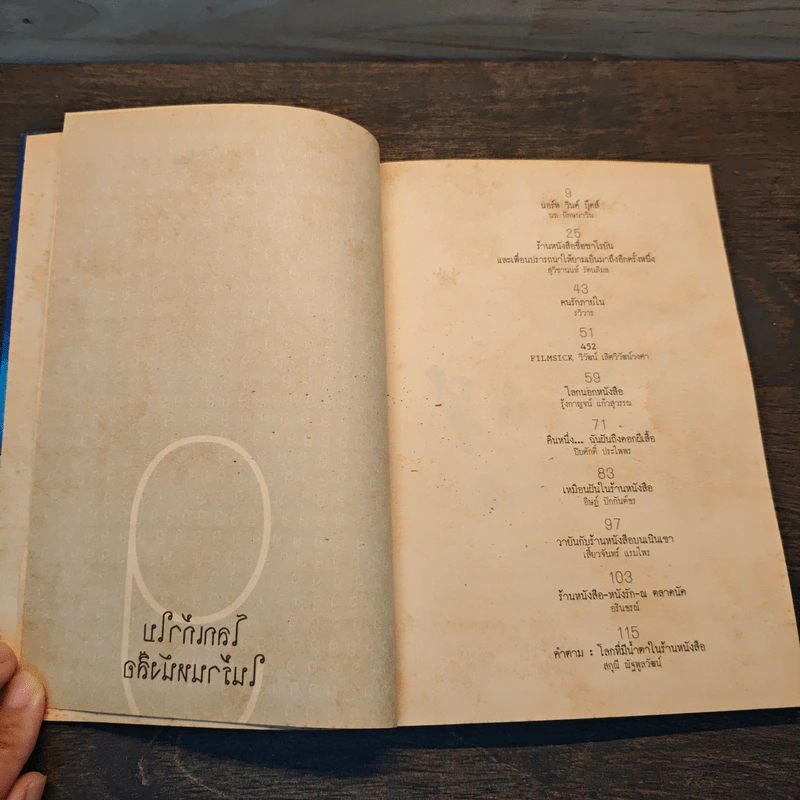 โลกเก้าใบ
ในร้านหนังสือ
9
นอร์ท วินด์ บุ๊คส์
นฆ ปักษนาวิน
25
ร้านหนังสือชื่อชาโรยัน
และเพื่อนปรารถนาให้ยามเย็นมาถึงอีกครั้งหนึ่ง
สุวิชานนท์ รัตนภิมล
43
คนรักภายใน
รวิวาร
51
452
FILMSICK วิวัฒน์ เลิศวิวัฒน์วงศา
59
โลกนอกหนังสือ
รุ้งกาญจน์ แก้วสุวรรณ
71
คืนหนึ่ง... ฉันฝันถึงดอกผีเสื้อ
ปิยศักดิ์ ประไพพร
83
เหมือนฝันในร้านหนังสือ
อิษฏ์ ปักกันต์ธร
97
วายันกับร้านหนังสือบนเนินเขา
เสี้ยวจันทร์ แรมไพร
103
ร้านหนังสือ-หนังรัก-ณ ตลาดนัด
อรินธรณ์
115
คำตาม : โลกที่มีน้ำตาในร้านหนังสือ
สกุณี ณัฐพูลวัฒน์